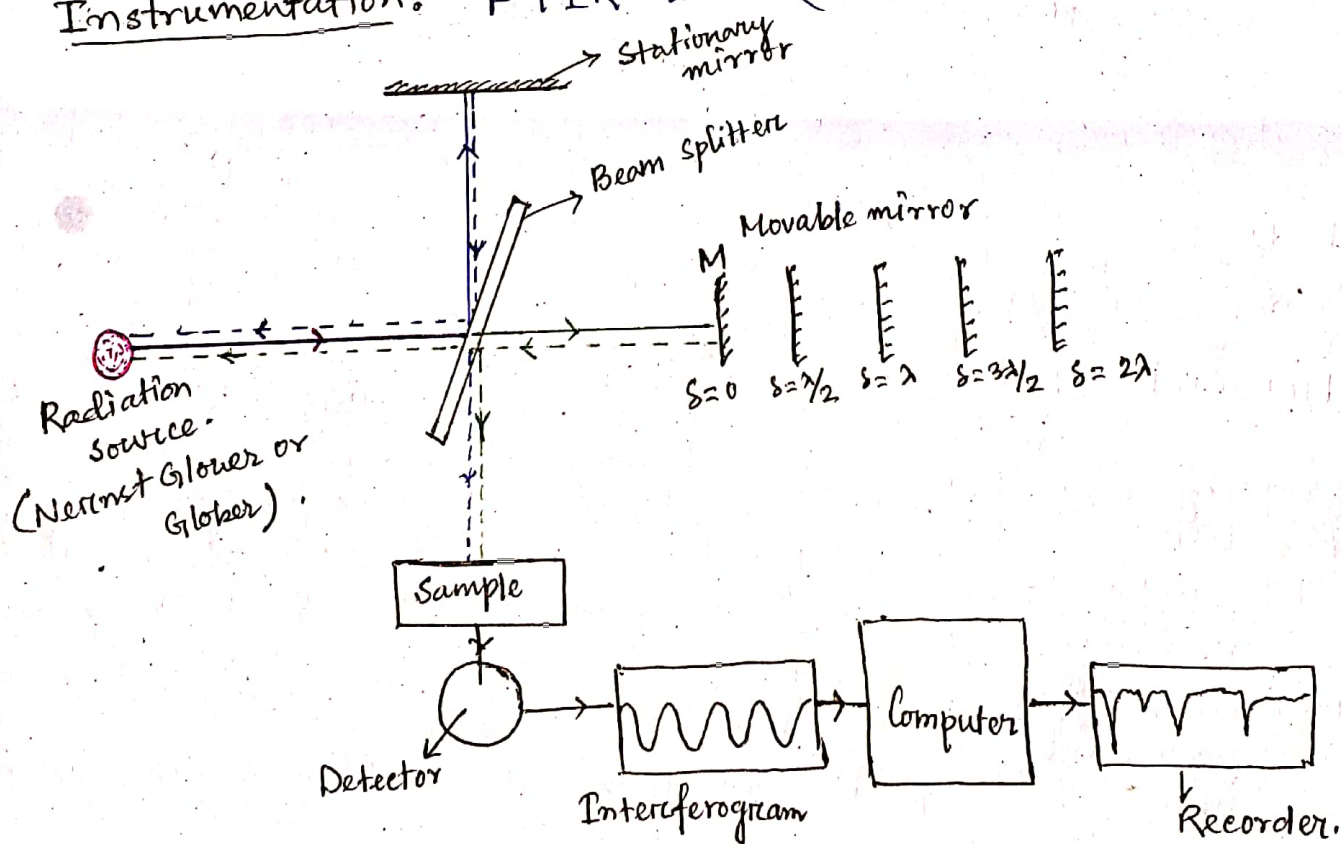 Instrumentation: FTIR
Stationary
mirror
Beam splitter
Movable mirror
M
δ=0 δ=λ/2 δ=λ δ=3λ/2 δ=2λ
Radiation
source.
(Nernst Glower or
Glober).
Sample
Detector
Interferogram
Computer
Recorder.